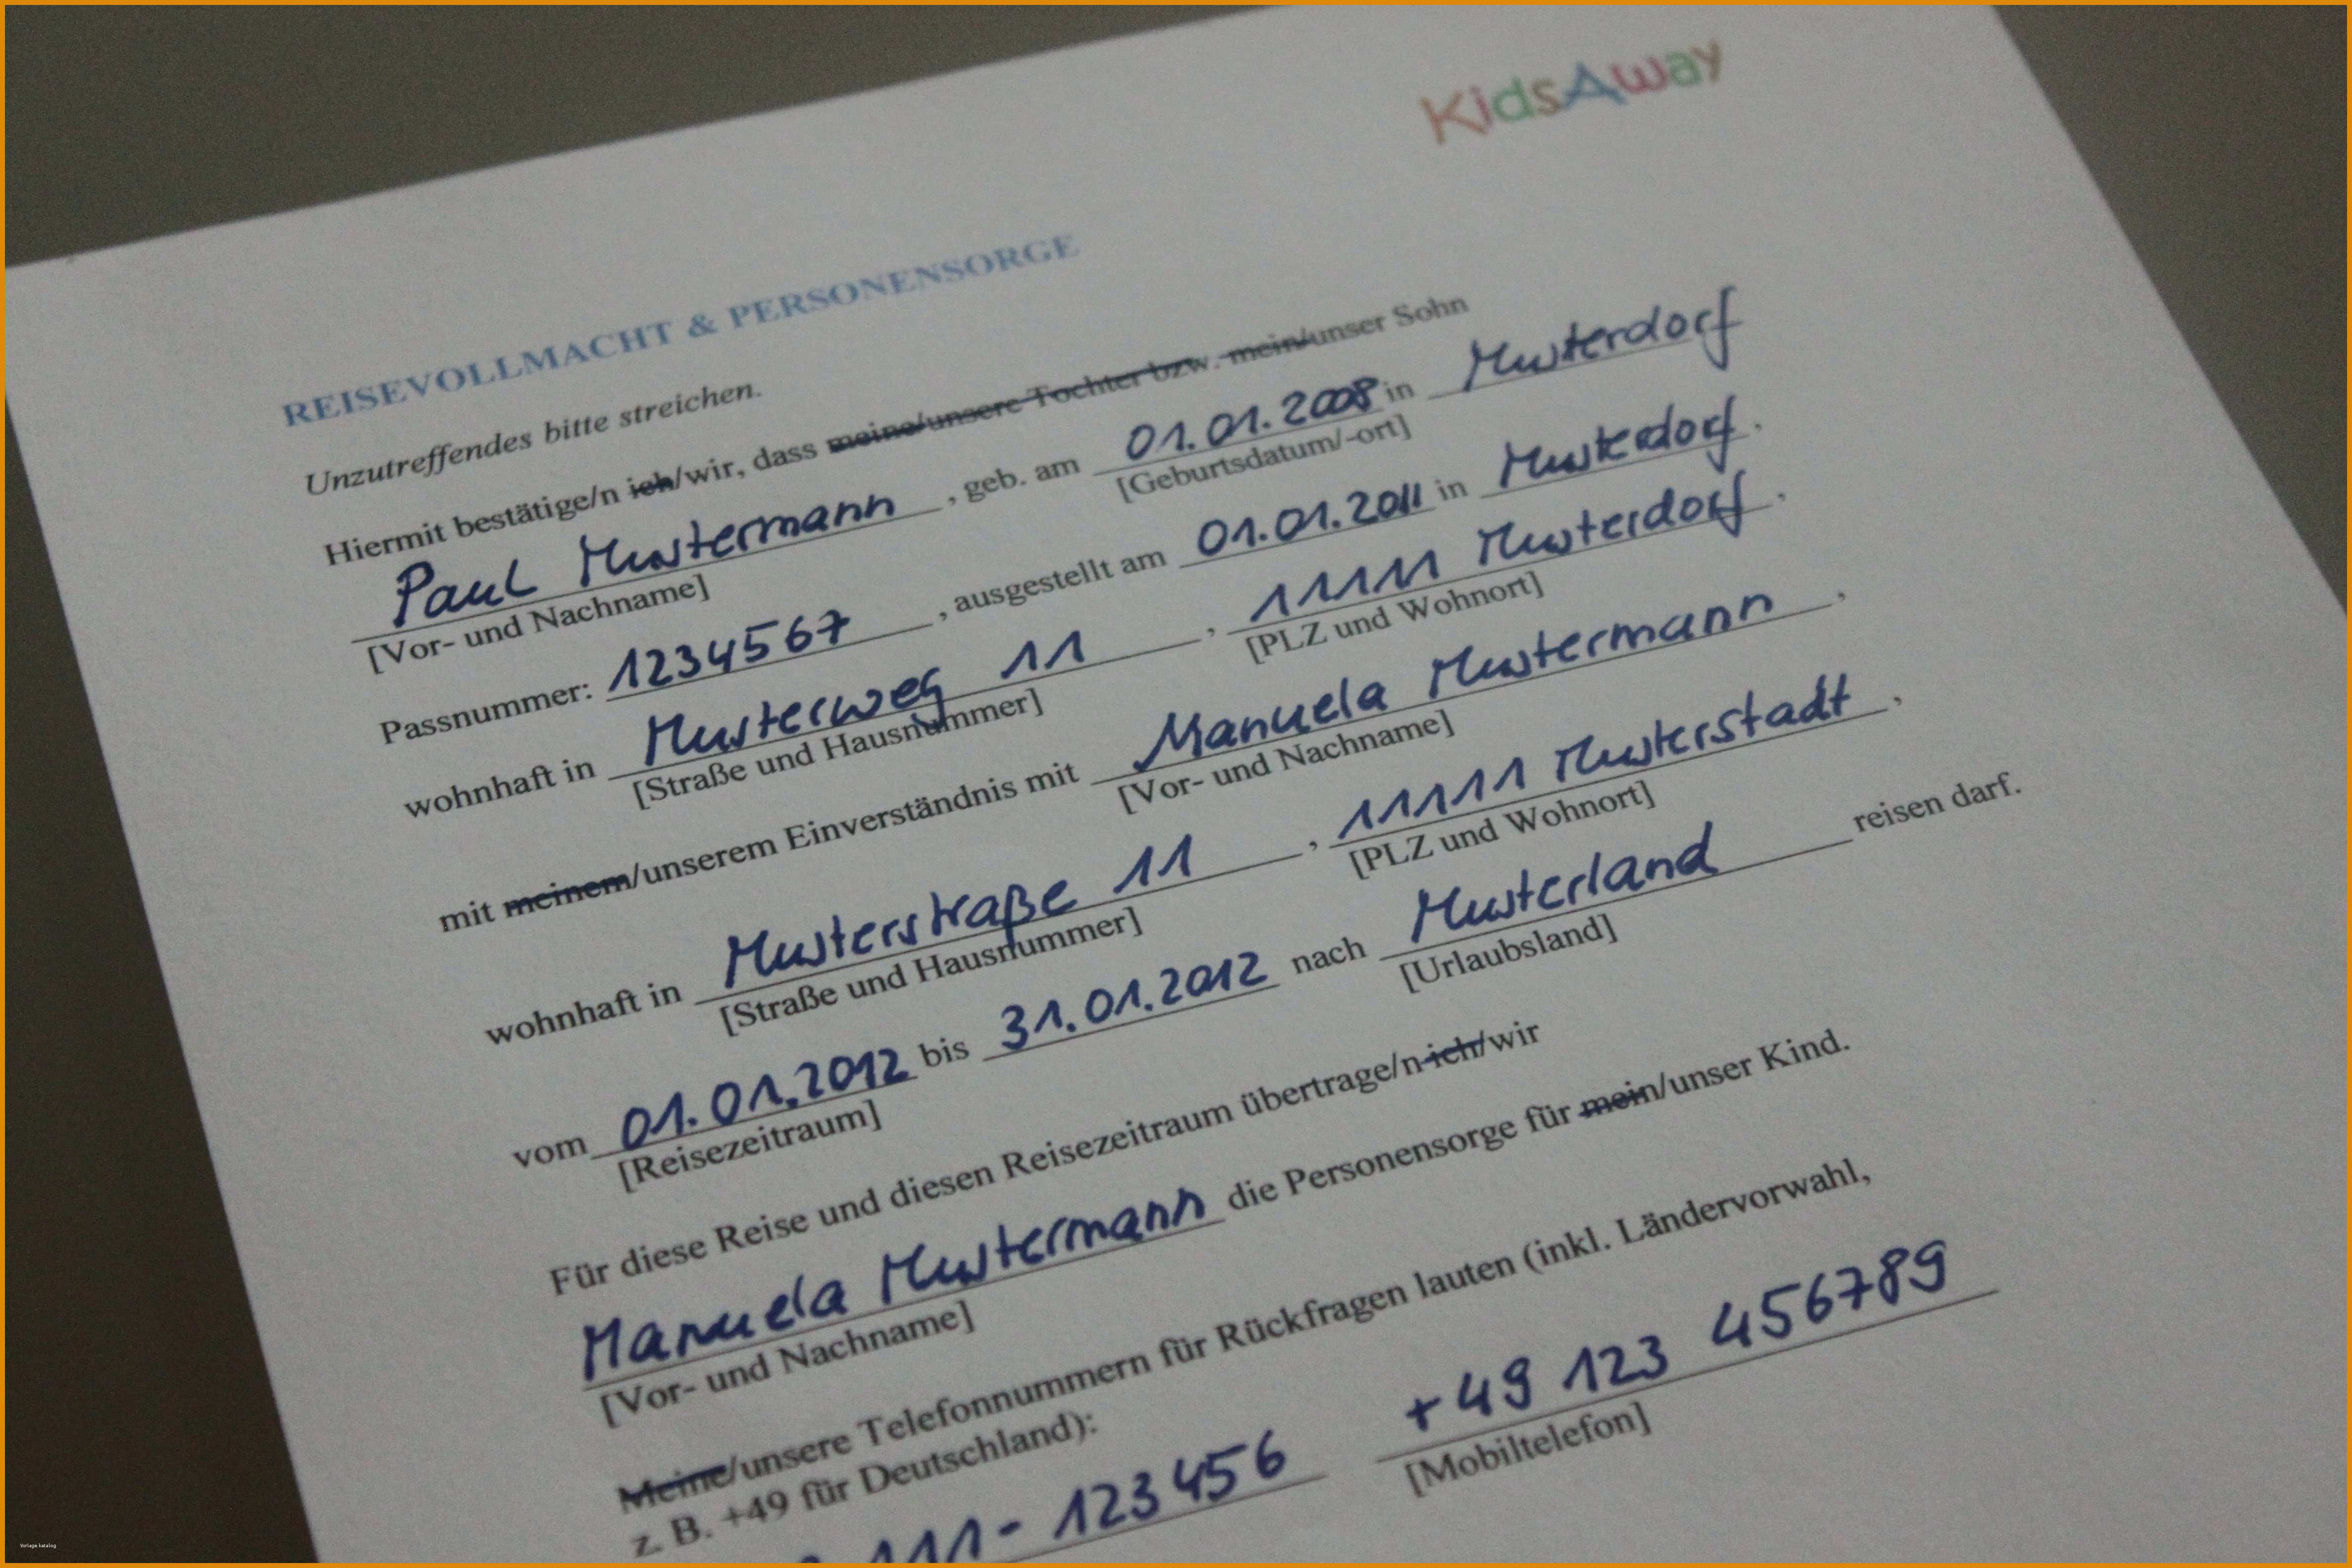 KidsAway
REISEVOLLMACHT & PERSONENSORGE
Unzutreffendes bitte streichen.
Hiermit bestätige/n ich/wir, dass meine/unsere Tochter bzw. mein/unser Sohn
Paul Mustermann, geb. am 01.01.2008 in Musterdorf
[Vor- und Nachname] [Geburtsdatum/-ort]
Passnummer: 1234567, ausgestellt am 01.01.2011 in Musterdorf,
wohnhaft in Musterweg 11, 11111 Musterdorf,
[Straße und Hausnummer] [PLZ und Wohnort]
mit meinem/unserem Einverständnis mit Manuela Mustermann,
[Vor- und Nachname]
wohnhaft in Musterstraße 11, 11111 Musterstadt,
[Straße und Hausnummer] [PLZ und Wohnort]
vom 01.01.2012 bis 31.01.2012 nach Musterland reisen darf.
[Reisezeitraum] [Urlaubsland]
Für diese Reise und diesen Reisezeitraum übertrage/n ich/wir
Manuela Mustermann die Personensorge für mein/unser Kind.
[Vor- und Nachname]
Meine/unsere Telefonnummern für Rückfragen lauten (inkl. Ländervorwahl,
z. B. +49 für Deutschland):
111- 123456 +49 123 456789
[Mobiltelefon]
Vorlage katalog